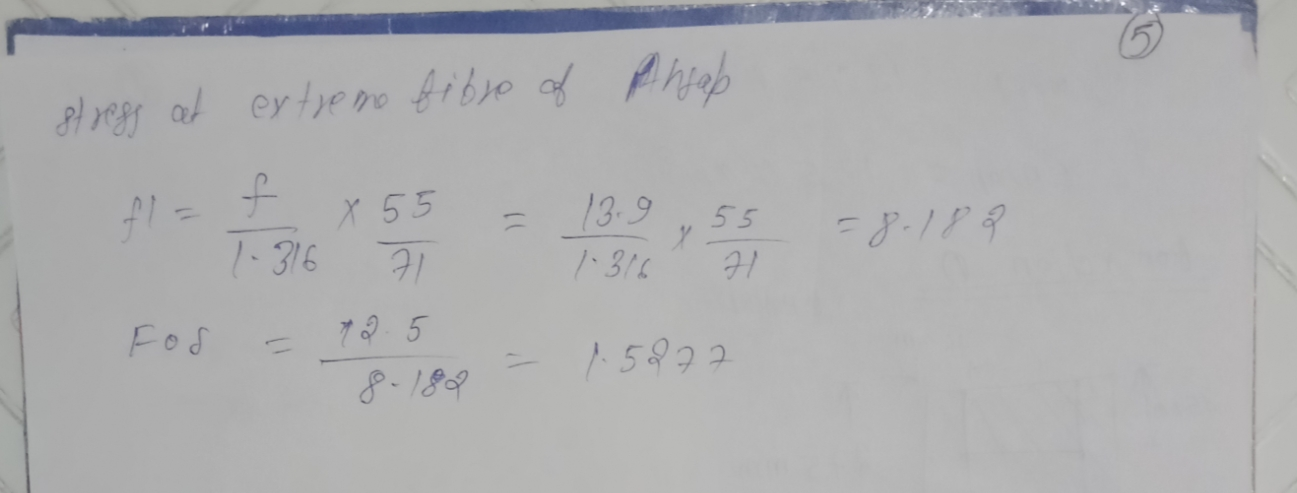 5
stress at extreme fibre of Ahsap
f1 = f/1.316 x 55/71 = 13.9/1.316 x 55/71 = 8.182
FOS = 12.5/8.182 = 1.5277